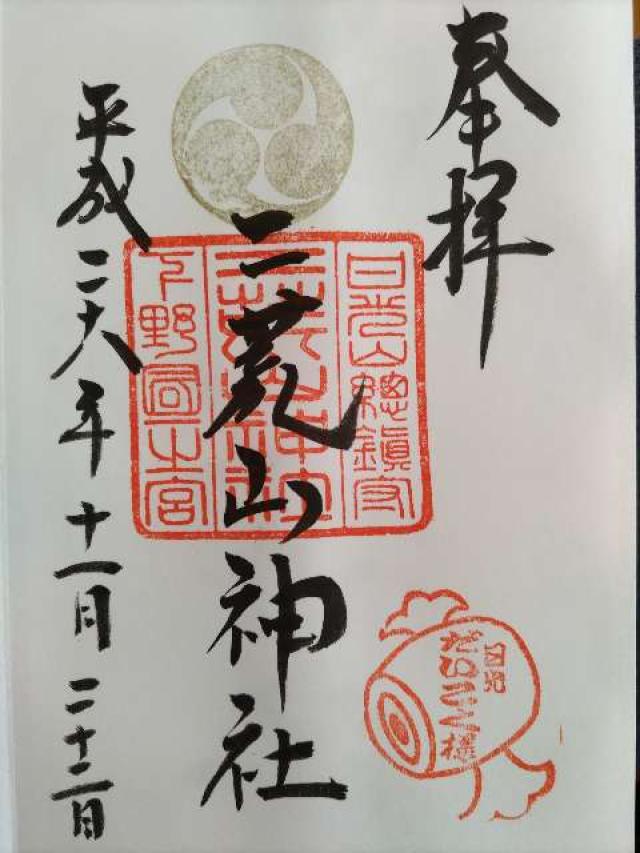 奉拝
日光山總鎮守
二荒山神社
下野國一宮
平成二十八年十一月二十二日
日光
だいこく様